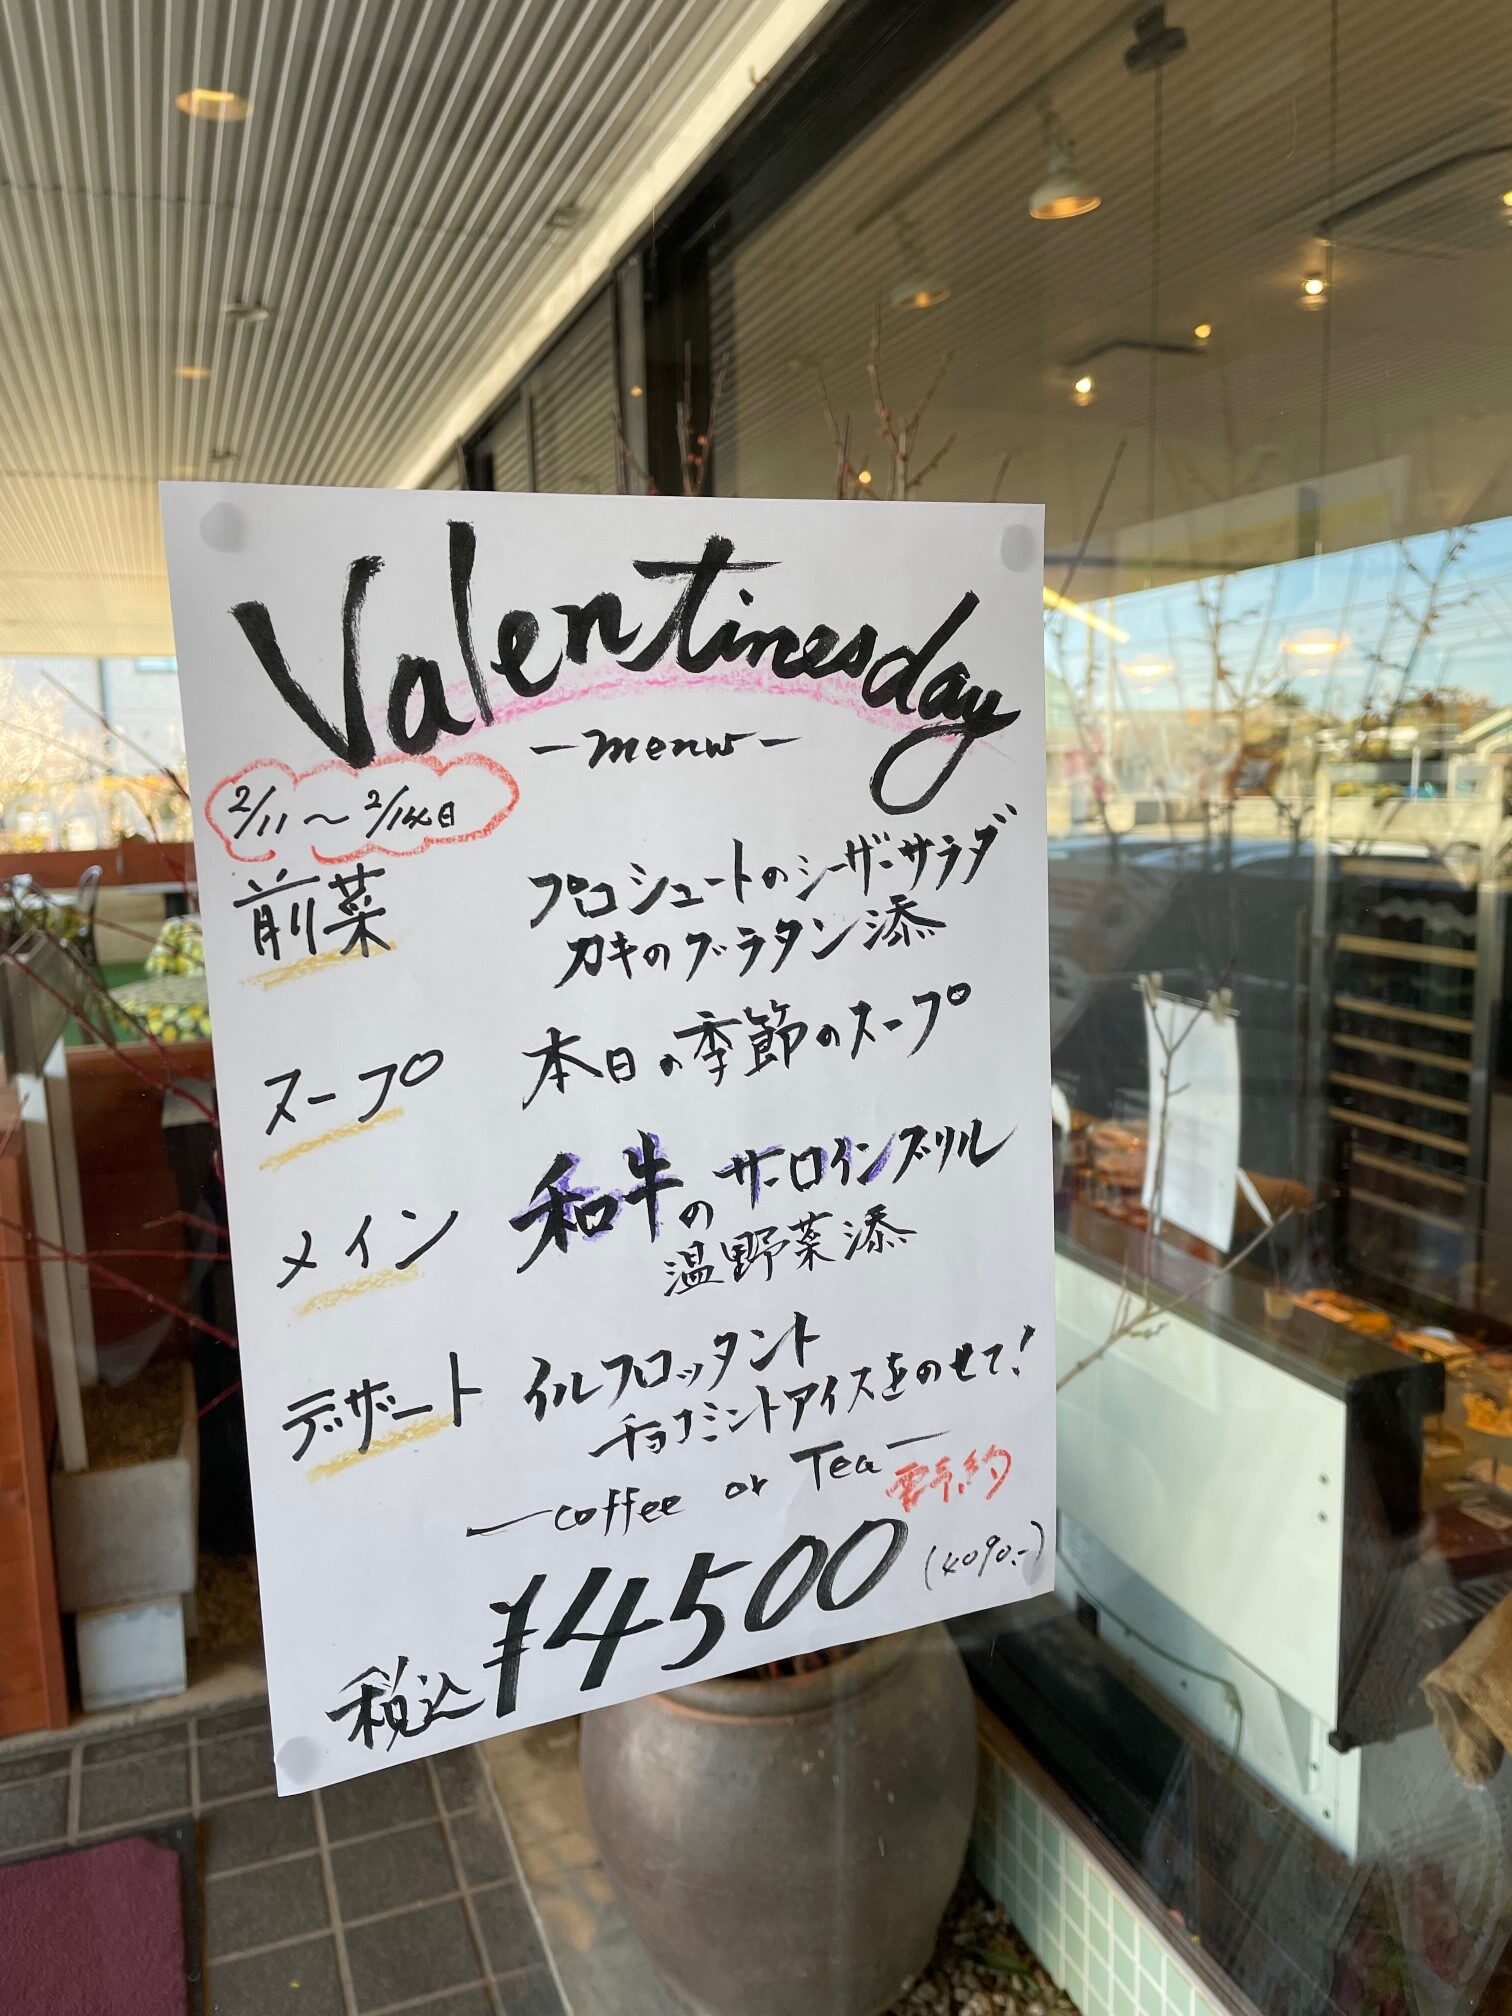 Valentinesday
-menu-
2/11～2/14日
前菜 プロシュートのシーザーサラダ
カキのグラタン添
スープ 本日の季節のスープ
メイン 和牛のサーロイングリル
温野菜添
デザート イルフロッタント
チョコミントアイスをのせて！
coffee or Tea
要予約
税込¥4500 (4090.-)